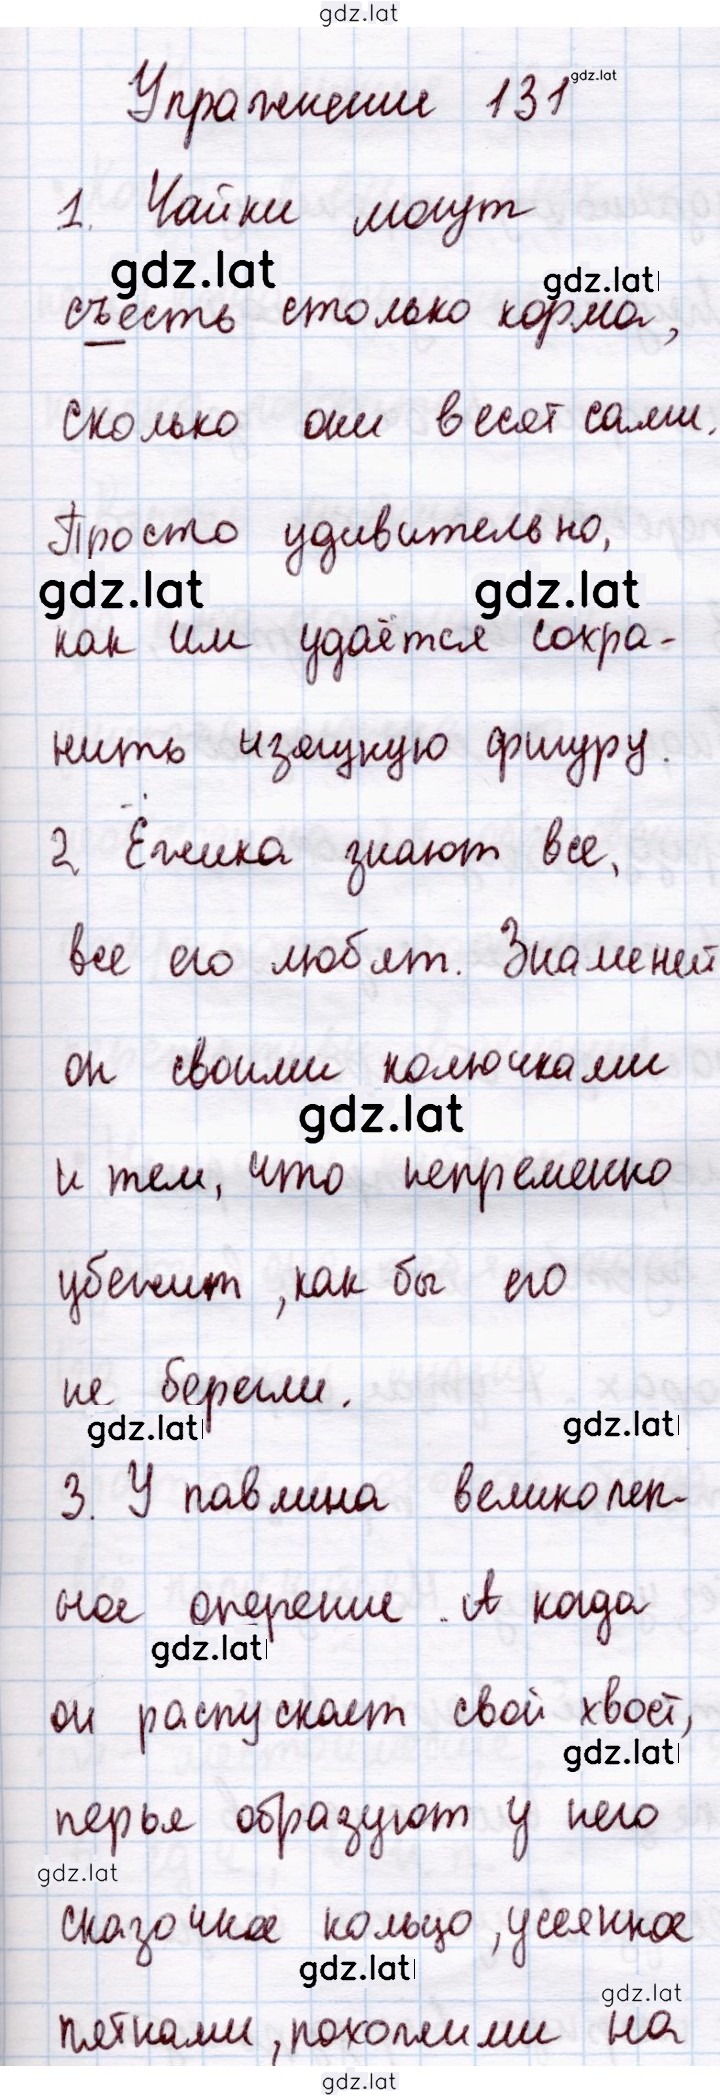 gdz.lat
Упражнение 131 gdz.lat
1. Чайки могут
gdz.lat gdz.lat
съесть столько корма,
сколько они весят сами.
Просто удивительно,
gdz.lat gdz.lat
как им удаётся сохра-
нить изящную фигуру.
2. Ёжика знают все,
все его любят. Знаменит
он своими колючками
gdz.lat
и тем, что непременно
убежит, как бы его
не берегли.
gdz.lat gdz.lat
3. У павлина великолеп-
ное оперение. А когда
gdz.lat
он распускает свой хвост,
gdz.lat
перья образуют у него
gdz.lat
сказочное кольцо, усеянное
gdz.lat gdz.lat
пятнами, похожими на
gdz.lat